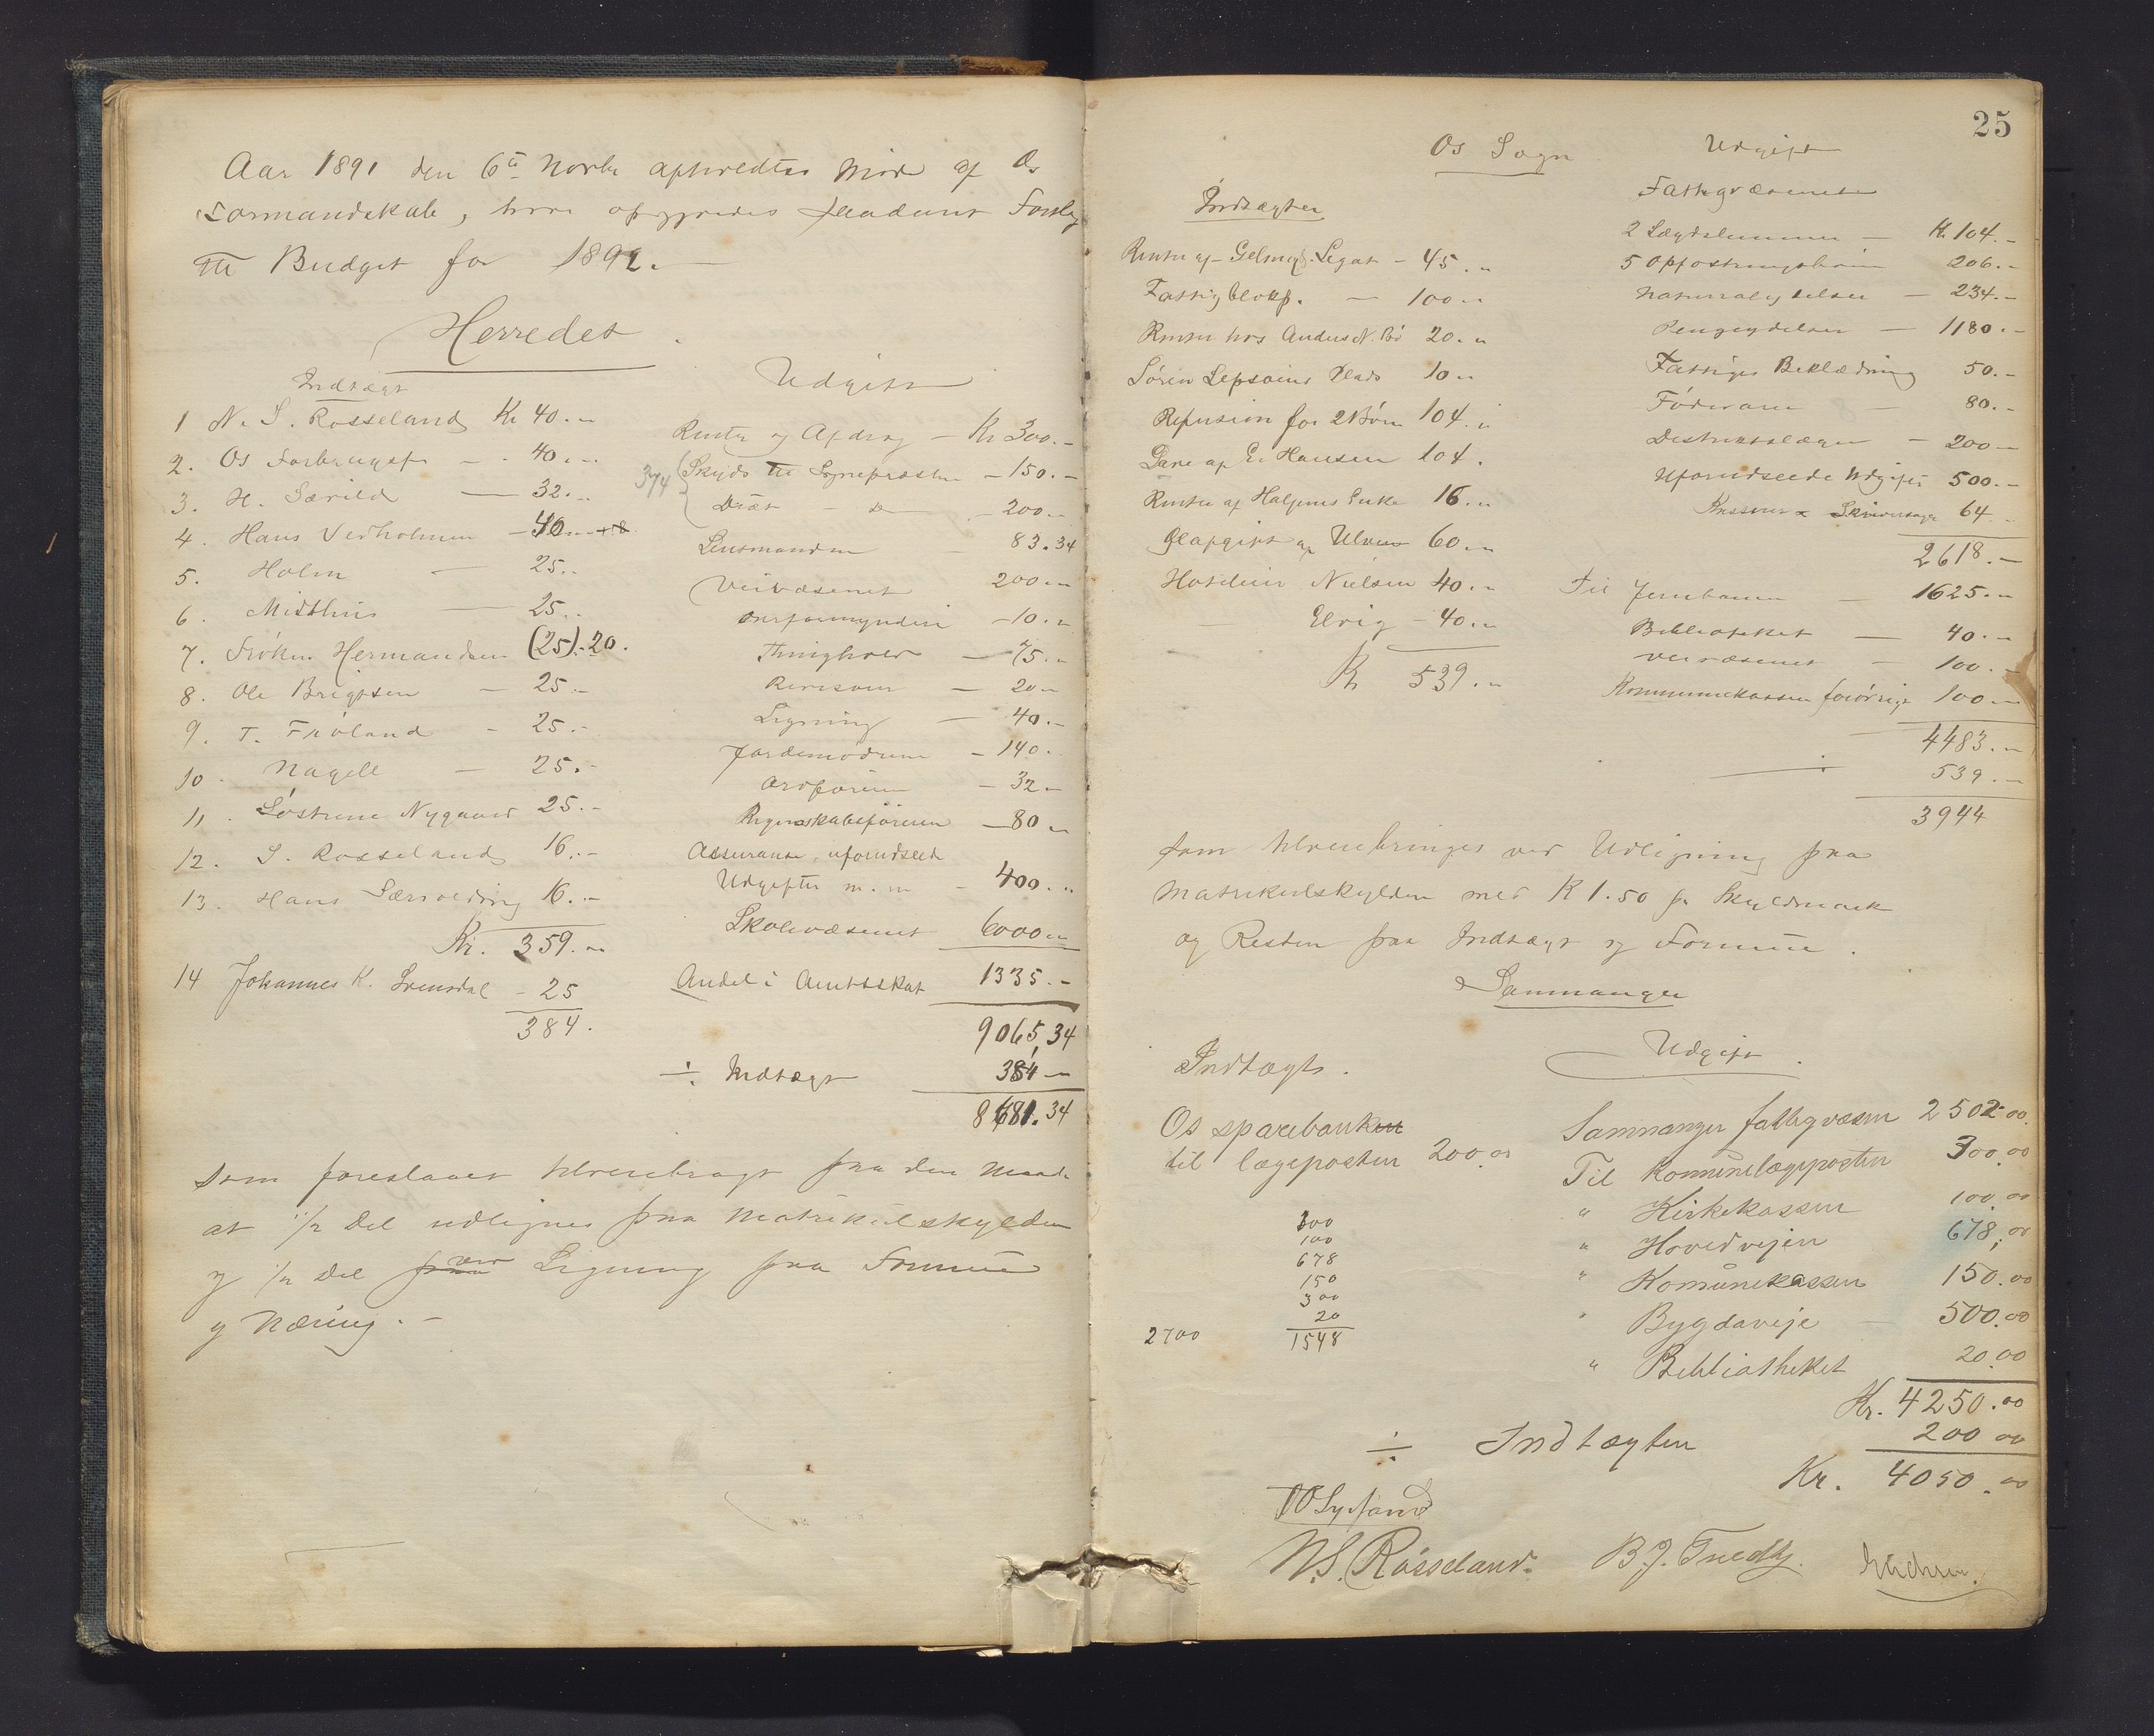 Aar 1891 den 6te Novbr afholdtes Møde af Os
Formandskab, hvor opgjordes saadant Forslag
til Budget for 1892.
Herredet.
Indtægt
1 N. S. Røsseland Kr 40.„
2. Os Forbrugsf - 40.„
3. H. Særild — 32.„
4. Hans Vedholmen - 40.„
5. Holm - 25.„
6. Midthus — 25.„
7. Frøken Hermandsen (25).-20.
8. Ole Brigtsen - 25.-
9. T. Frøland - 25.-
10. Nagell — 25.-
11. Søstrene Nygaard 25.-
12. S. Røsseland 16.-
13. Hans Særvolding 16.-
Kr. 359.„
14 Johannes K. Svensdal - 25
384.
Udgift
Renter og Afdrag — Kr 300.-
374
Skyds til Sognepræsten — 150.-
Diæt - Do — 200.-
Lensmanden — 83.34
Veivæsenet 200.„
Overformynderi - 10.„
Thinghold — 75.„
Revision — 20„
Ligning — 40.-
Jordemødrene - 140.-
Ordføreren - 32.-
Regnskabsføreren — 80„
Assurance, uforudseede
Udgifter m.m - 400.„
Skolevæsenet 6000„
Andel i Amtsskat 1335.-
9065,34
÷ Indtægt 384 —
8681.34
som foreslaaes tilveiebragt paa den Maade
at 1/2 Del udlignes paa Matrikulskylden
og 1/2 Del paa ved Ligning paa Formue
og Næring.-
25
Os Sogn
Indtægter
Renter af Gelmuyd. Legat - 45.„
Fattigblokk. — 100.„
Renter hos Anders N. Bø 20.„
Søren Lepsøens Plads 10„
Refusion for 2 Børn 104.„
Gave af E. Hansen 104.
Renter af Halfens Enke 16.„
Afgift af Ulven 60.„
Hoteleier Nielsen 40.„
— Elvig - 40.„
Kr 539.„
Udgift
Fattigvæsenet
2 Lægdslemmer — Kr. 104.-
5 Opfostringsbørn 206.-
Naturalydelser — 234.-
Pengeydelser — 1180.-
Fattiges Beklædning 50.-
Fødevarer — 80.-
Distriktslægen — 200—
Uforudseede Udgifter 500.-
Kasserer & Skriversager 64.-
2618.-
Til Jernbanen — 1625.„
Bibliotheket — 40.-
Veivæsenet - 100.-
Kommunekassen forøvrigt 100.—
4483.„
÷ 539.—
3944
som tilveiebringes ved Udligning paa
Matrikulskylden med K 1.50 pr Skyldmark
og Resten paa Indtægt og Formue.
Samnanger
Indtægt.
Os sparebanken
til lægeposten 200.00
300
100
678
150
300
20
1548
2700
Udgift.
Samnanger fattigvæsen 2502.00.
Til Komunelægeposten 300.00
" Kirkekassen 100.00
" Hovedvejen 678,00
" Komunekassen 150.00
" Bygdaveje — 500.00
" Bibliotheket 20.00
Kr. 4250.00
÷ Indtægten 200 00
Kr. 4050.00
N. S. Røsseland.